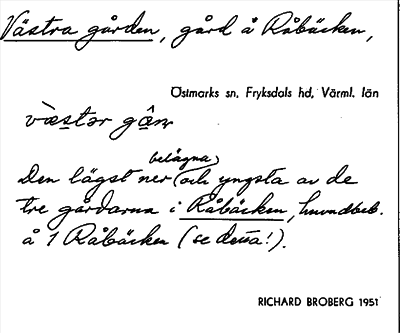 Västra gården, gård å Råbäcken,
Östmarks sn, Fryksdals hd, Värml. län
væstər gân
belägna
Den lägst ner och yngsta av de
tre gårdarna i Råbäcken, huvudbeb.
å 1 Råbäcken (se dessa!).
RICHARD BROBERG 1951